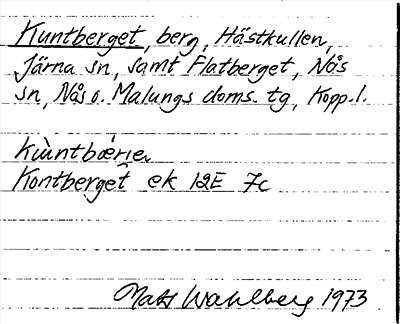 Kuntberget, berg, Hästkullen,
Järna sn, samt Flatberget, Nås
sn, Nås o. Malungs doms. tg, Kopp.l.
kùntbærje
Kontberget ek 12E 7c
Mats Wahlberg 1973